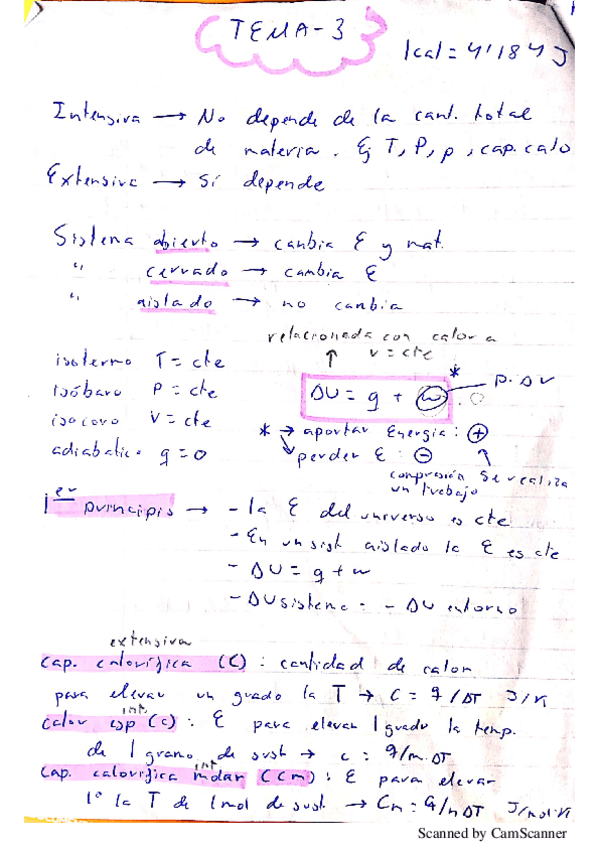 TEMA-3
1cal = 4'184 J
Intensiva → No depende de la cant. total
de materia. Ej T, P, ρ, cap. calo
Extensiva → Sí depende
Sistema abierto → cambia E y mat.
" cerrado → cambia E
" aislado → no cambia
relacionada con calor a
V = cte
isotermo T = cte
isóbaro P = cte
isocoro V = cte
adiabatic. q = 0
ΔU = q + w *
P. ΔV
* → aportar Energia: +
perder E: -
compresión se realiza
un trabajo
1er principio → - la E del universo es cte
- En un sist. aislado la E es cte
- ΔU = q + w
- ΔU sistema = - ΔU entorno
extensiva
Cap. calorífica (C): cantidad de calor
para elevar un grado la T → C = q/ΔT J/K
int.
Calor esp (c): E para elevar 1 grado la temp.
de 1 gramo de sust → c = q/m.ΔT
int
Cap. calorifica molar (Cm): E para elevar
1º la T de 1 mol de sust. → Cm = q/nΔT J/mol.K
Scanned by CamScanner